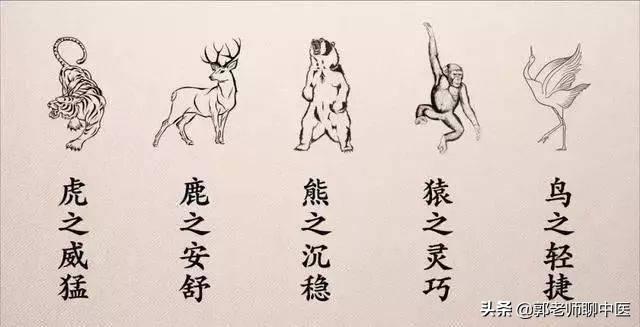 虎之威猛
鹿之安舒
熊之沉稳
猿之灵巧
鸟之轻捷
头条 @郭老师聊中医